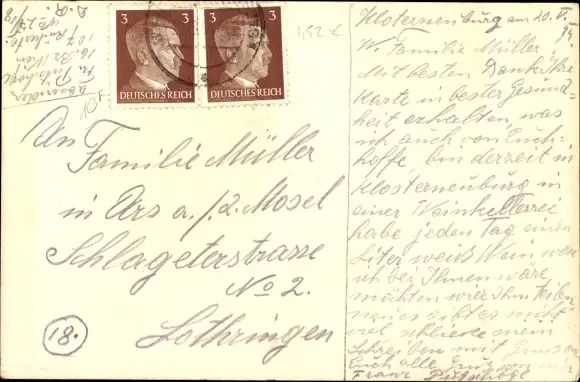 3 3
DEUTSCHES REICH DEUTSCHES REICH
1,52 €
An
Familie Müller
in Ars a./d. Mosel
Schlageterstrasse
No 2.
Lothringen
18.
Klosterneuburg am 20.
W. Familie Müller,
Mit besten Dank Ihre
Karte in bester Gesund-
heit erhalten, was
ich auch von Euch
hoffe bin derzeit in
Klosterneuburg in
einer Weinkellerei
habe jeden Tag einen
Liter weiß Wein wen
ich bei Ihnen wäre
möchten wir Ihm teilen
es gibt es nicht
viel schliesse mein
Schreiben mit Gruss
Euch alle
Franz